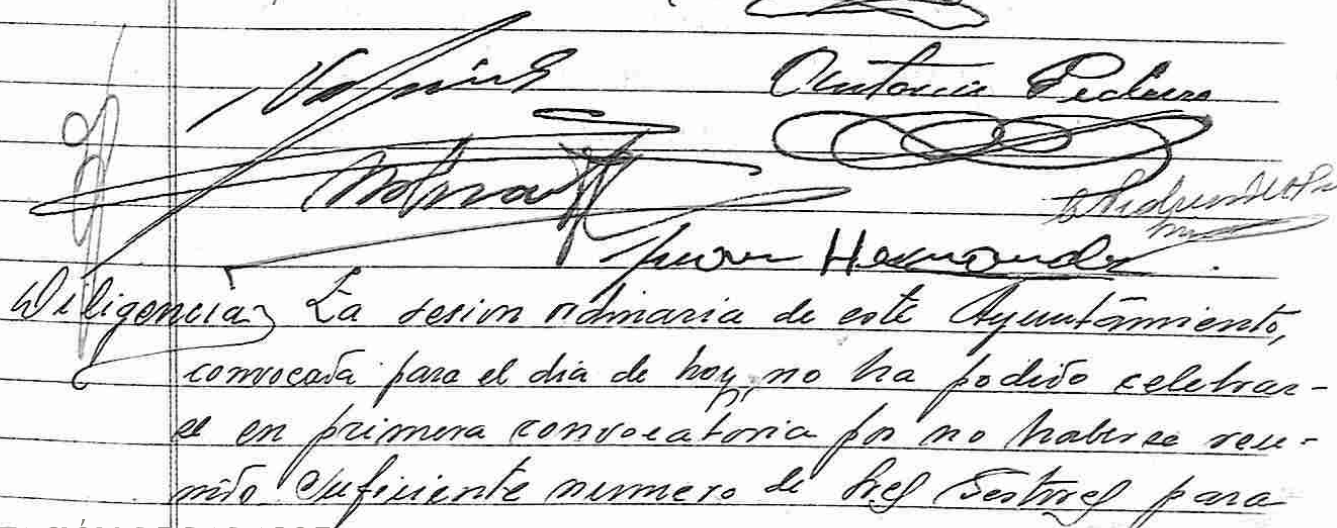 Antonio Pedrero
Molina
Juan Hernandez
Diligencia) La sesion ordinaria de este Ayuntamiento,
convocada para el dia de hoy, no ha podido celebrar-
se en primera convocatoria por no haberse reu-
nido suficiente numero de Sres Gestores para